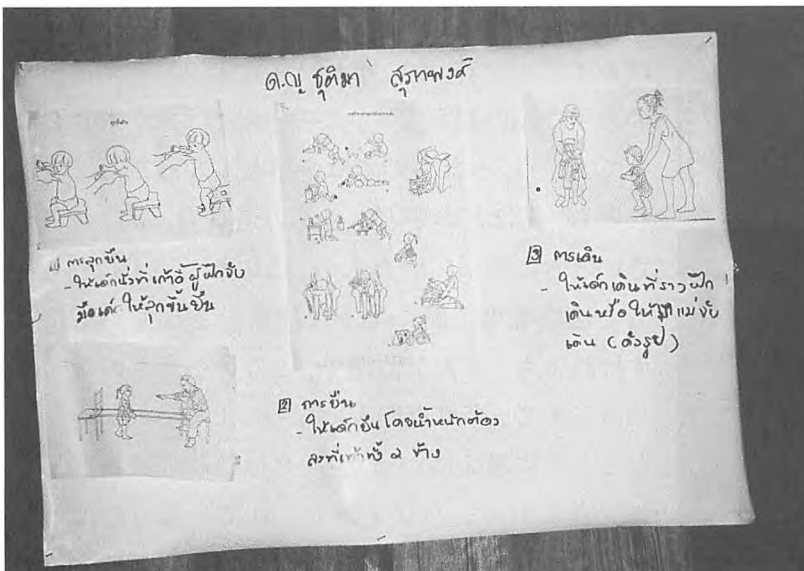 ด.ญ ชุติมา สุราพงศ์
1 การลุกยืน
- ให้เด็กนั่งที่เก้าอี้ ผู้ฝึกจับ
มือเด็ก ให้ลุกขึ้นยืน
2 การยืน
- ให้เด็กยืน โดยน้ำหนักต้อง
ลงที่เท้าทั้ง ๒ ข้าง
3 การเดิน
- ให้เด็กเดินที่ราวฝึก
เดินหรือให้ แม่จับ
เดิน (ดังรูป)